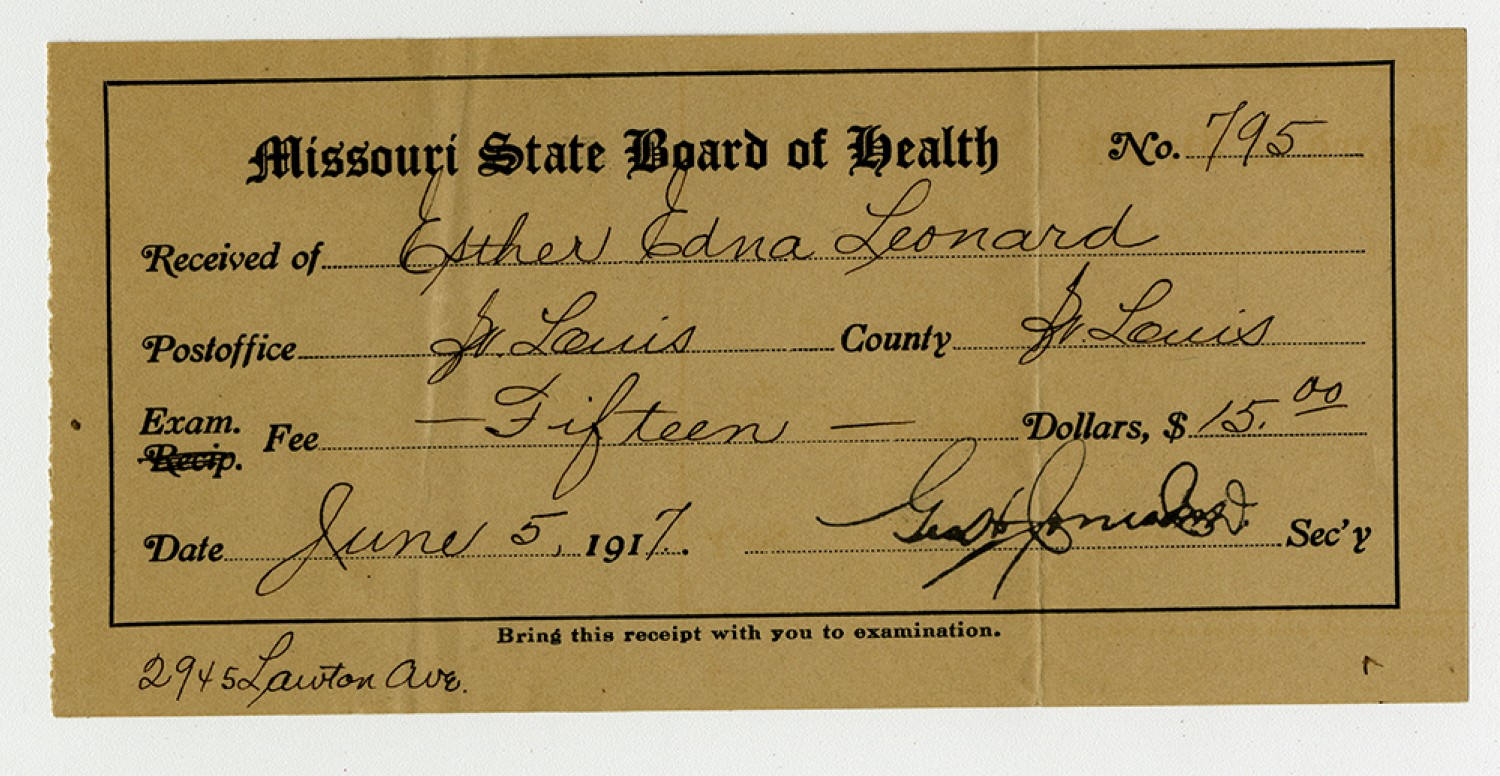 Missouri State Board of Health No. 795
Received of Esther Edna Leonard
Postoffice St. Louis County St. Louis
Exam. Fee — Fifteen — Dollars, $ 15.00
Recip.
Date June 5, 1917. Geo H Jones M.D. Sec'y
Bring this receipt with you to examination.
2945 Lawton Ave.